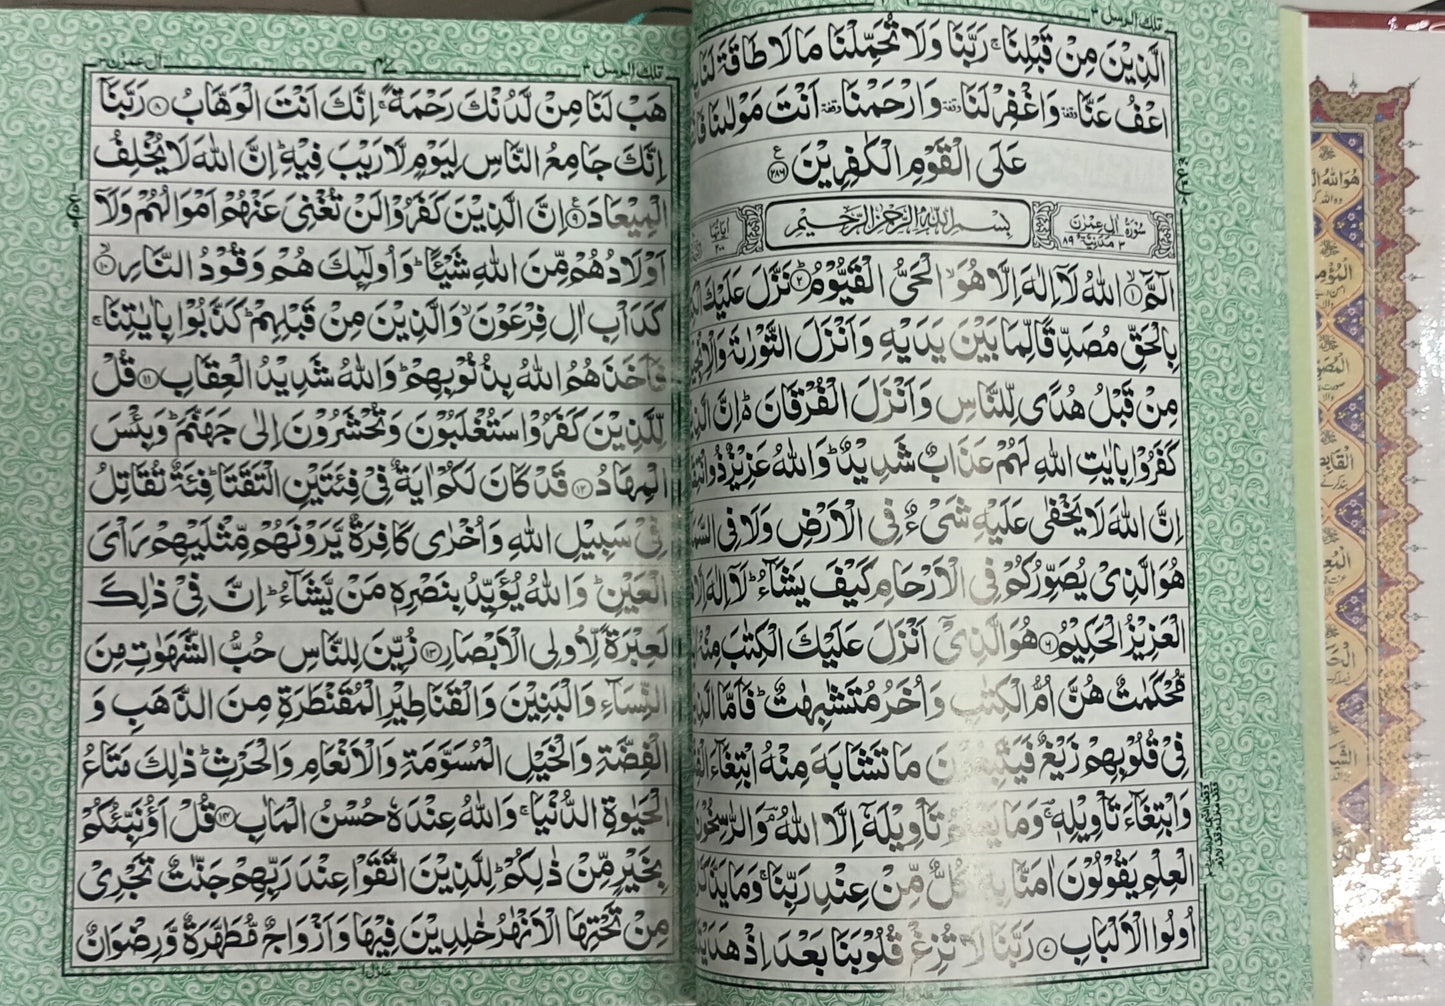 تلك الرسل ٣
الَّذِيْنَ مِنْ قَبْلِنَا ۚ رَبَّنَا وَلَا تُحَمِّلْنَا مَا لَا طَاقَةَ لَنَا
اعْفُ عَنَّا وقفة وَاغْفِرْ لَنَا وقفة وَارْحَمْنَا وقفة اَنْتَ مَوْلٰىنَا
عَلَى الْقَوْمِ الْكٰفِرِيْنَ ﴿٢٨٦﴾
سُوْرَةُ اٰلِ عِمْرٰنَ
٣ مَدَنِيَّةٌ ٨٩
بِسْمِ اللّٰهِ الرَّحْمٰنِ الرَّحِيْمِ
اٰيَاتُهَا ٢٠٠
الٓمّٓ ﴿١﴾ اللّٰهُ لَاۤ اِلٰهَ اِلَّا هُوَ ۙ الْحَيُّ الْقَيُّوْمُ ﴿٢﴾ نَزَّلَ عَلَيْكَ
بِالْحَقِّ مُصَدِّقًا لِّمَا بَيْنَ يَدَيْهِ وَاَنْزَلَ التَّوْرٰىةَ
مِنْ قَبْلُ هُدًى لِّلنَّاسِ وَاَنْزَلَ الْفُرْقَانَ ؕ اِنَّ
كَفَرُوْا بِاٰيٰتِ اللّٰهِ لَهُمْ عَذَابٌ شَدِيْدٌ ؕ وَاللّٰهُ عَزِيْزٌ
اِنَّ اللّٰهَ لَا يَخْفٰى عَلَيْهِ شَيْءٌ فِي الْاَرْضِ وَلَا فِي
هُوَ الَّذِيْ يُصَوِّرُكُمْ فِي الْاَرْحَامِ كَيْفَ يَشَآءُ ؕ لَاۤ اِلٰهَ
الْعَزِيْزُ الْحَكِيْمُ ﴿٦﴾ هُوَ الَّذِيْۤ اَنْزَلَ عَلَيْكَ الْكِتٰبَ مِنْهُ
مُّحْكَمٰتٌ هُنَّ اُمُّ الْكِتٰبِ وَاُخَرُ مُتَشٰبِهٰتٌ ؕ فَاَمَّا
فِيْ قُلُوْبِهِمْ زَيْغٌ فَيَتَّبِعُوْنَ مَا تَشَابَهَ مِنْهُ ابْتِغَآءَ
وَابْتِغَآءَ تَاْوِيْلِهٖ ۚ وَمَا يَعْلَمُ تَاْوِيْلَهٗۤ اِلَّا اللّٰهُ ۘ وَالرّٰسِخُوْنَ
الْعِلْمِ يَقُوْلُوْنَ اٰمَنَّا بِهٖ ۙ كُلٌّ مِّنْ عِنْدِ رَبِّنَا ۚ وَمَا
اُولُوا الْاَلْبَابِ ﴿٧﴾ رَبَّنَا لَا تُزِغْ قُلُوْبَنَا بَعْدَ اِذْ
تلك الرسل ٣
اٰل عمرٰن ٣
هَبْ لَنَا مِنْ لَّدُنْكَ رَحْمَةً ۚ اِنَّكَ اَنْتَ الْوَهَّابُ ﴿٨﴾ رَبَّنَاۤ
اِنَّكَ جَامِعُ النَّاسِ لِيَوْمٍ لَّا رَيْبَ فِيْهِ ؕ اِنَّ اللّٰهَ لَا يُخْلِفُ
الْمِيْعَادَ ﴿٩﴾ اِنَّ الَّذِيْنَ كَفَرُوْا لَنْ تُغْنِيَ عَنْهُمْ اَمْوَالُهُمْ وَلَاۤ
اَوْلَادُهُمْ مِّنَ اللّٰهِ شَيْـًٔا ؕ وَاُولٰٓئِكَ هُمْ وَقُوْدُ النَّارِ ﴿١٠﴾
كَدَاْبِ اٰلِ فِرْعَوْنَ ۙ وَالَّذِيْنَ مِنْ قَبْلِهِمْ ؕ كَذَّبُوْا بِاٰيٰتِنَا ۚ
فَاَخَذَهُمُ اللّٰهُ بِذُنُوْبِهِمْ ؕ وَاللّٰهُ شَدِيْدُ الْعِقَابِ ﴿١١﴾ قُلْ
لِّلَّذِيْنَ كَفَرُوْا سَتُغْلَبُوْنَ وَتُحْشَرُوْنَ اِلٰى جَهَنَّمَ ؕ وَبِئْسَ
الْمِهَادُ ﴿١٢﴾ قَدْ كَانَ لَكُمْ اٰيَةٌ فِيْ فِئَتَيْنِ الْتَقَتَا ؕ فِئَةٌ تُقَاتِلُ
فِيْ سَبِيْلِ اللّٰهِ وَاُخْرٰى كَافِرَةٌ يَّرَوْنَهُمْ مِّثْلَيْهِمْ رَاْيَ
الْعَيْنِ ؕ وَاللّٰهُ يُؤَيِّدُ بِنَصْرِهٖ مَنْ يَّشَآءُ ؕ اِنَّ فِيْ ذٰلِكَ
لَعِبْرَةً لِّاُولِي الْاَبْصَارِ ﴿١٣﴾ زُيِّنَ لِلنَّاسِ حُبُّ الشَّهَوٰتِ مِنَ
النِّسَآءِ وَالْبَنِيْنَ وَالْقَنَاطِيْرِ الْمُقَنْطَرَةِ مِنَ الذَّهَبِ وَ
الْفِضَّةِ وَالْخَيْلِ الْمُسَوَّمَةِ وَالْاَنْعَامِ وَالْحَرْثِ ؕ ذٰلِكَ مَتَاعُ
الْحَيٰوةِ الدُّنْيَا ۚ وَاللّٰهُ عِنْدَهٗ حُسْنُ الْمَاٰبِ ﴿١٤﴾ قُلْ اَؤُنَبِّئُكُمْ
بِخَيْرٍ مِّنْ ذٰلِكُمْ ؕ لِلَّذِيْنَ اتَّقَوْا عِنْدَ رَبِّهِمْ جَنّٰتٌ تَجْرِيْ
مِنْ تَحْتِهَا الْاَنْهٰرُ خٰلِدِيْنَ فِيْهَا وَاَزْوَاجٌ مُّطَهَّرَةٌ وَّرِضْوَانٌ
منزل ١